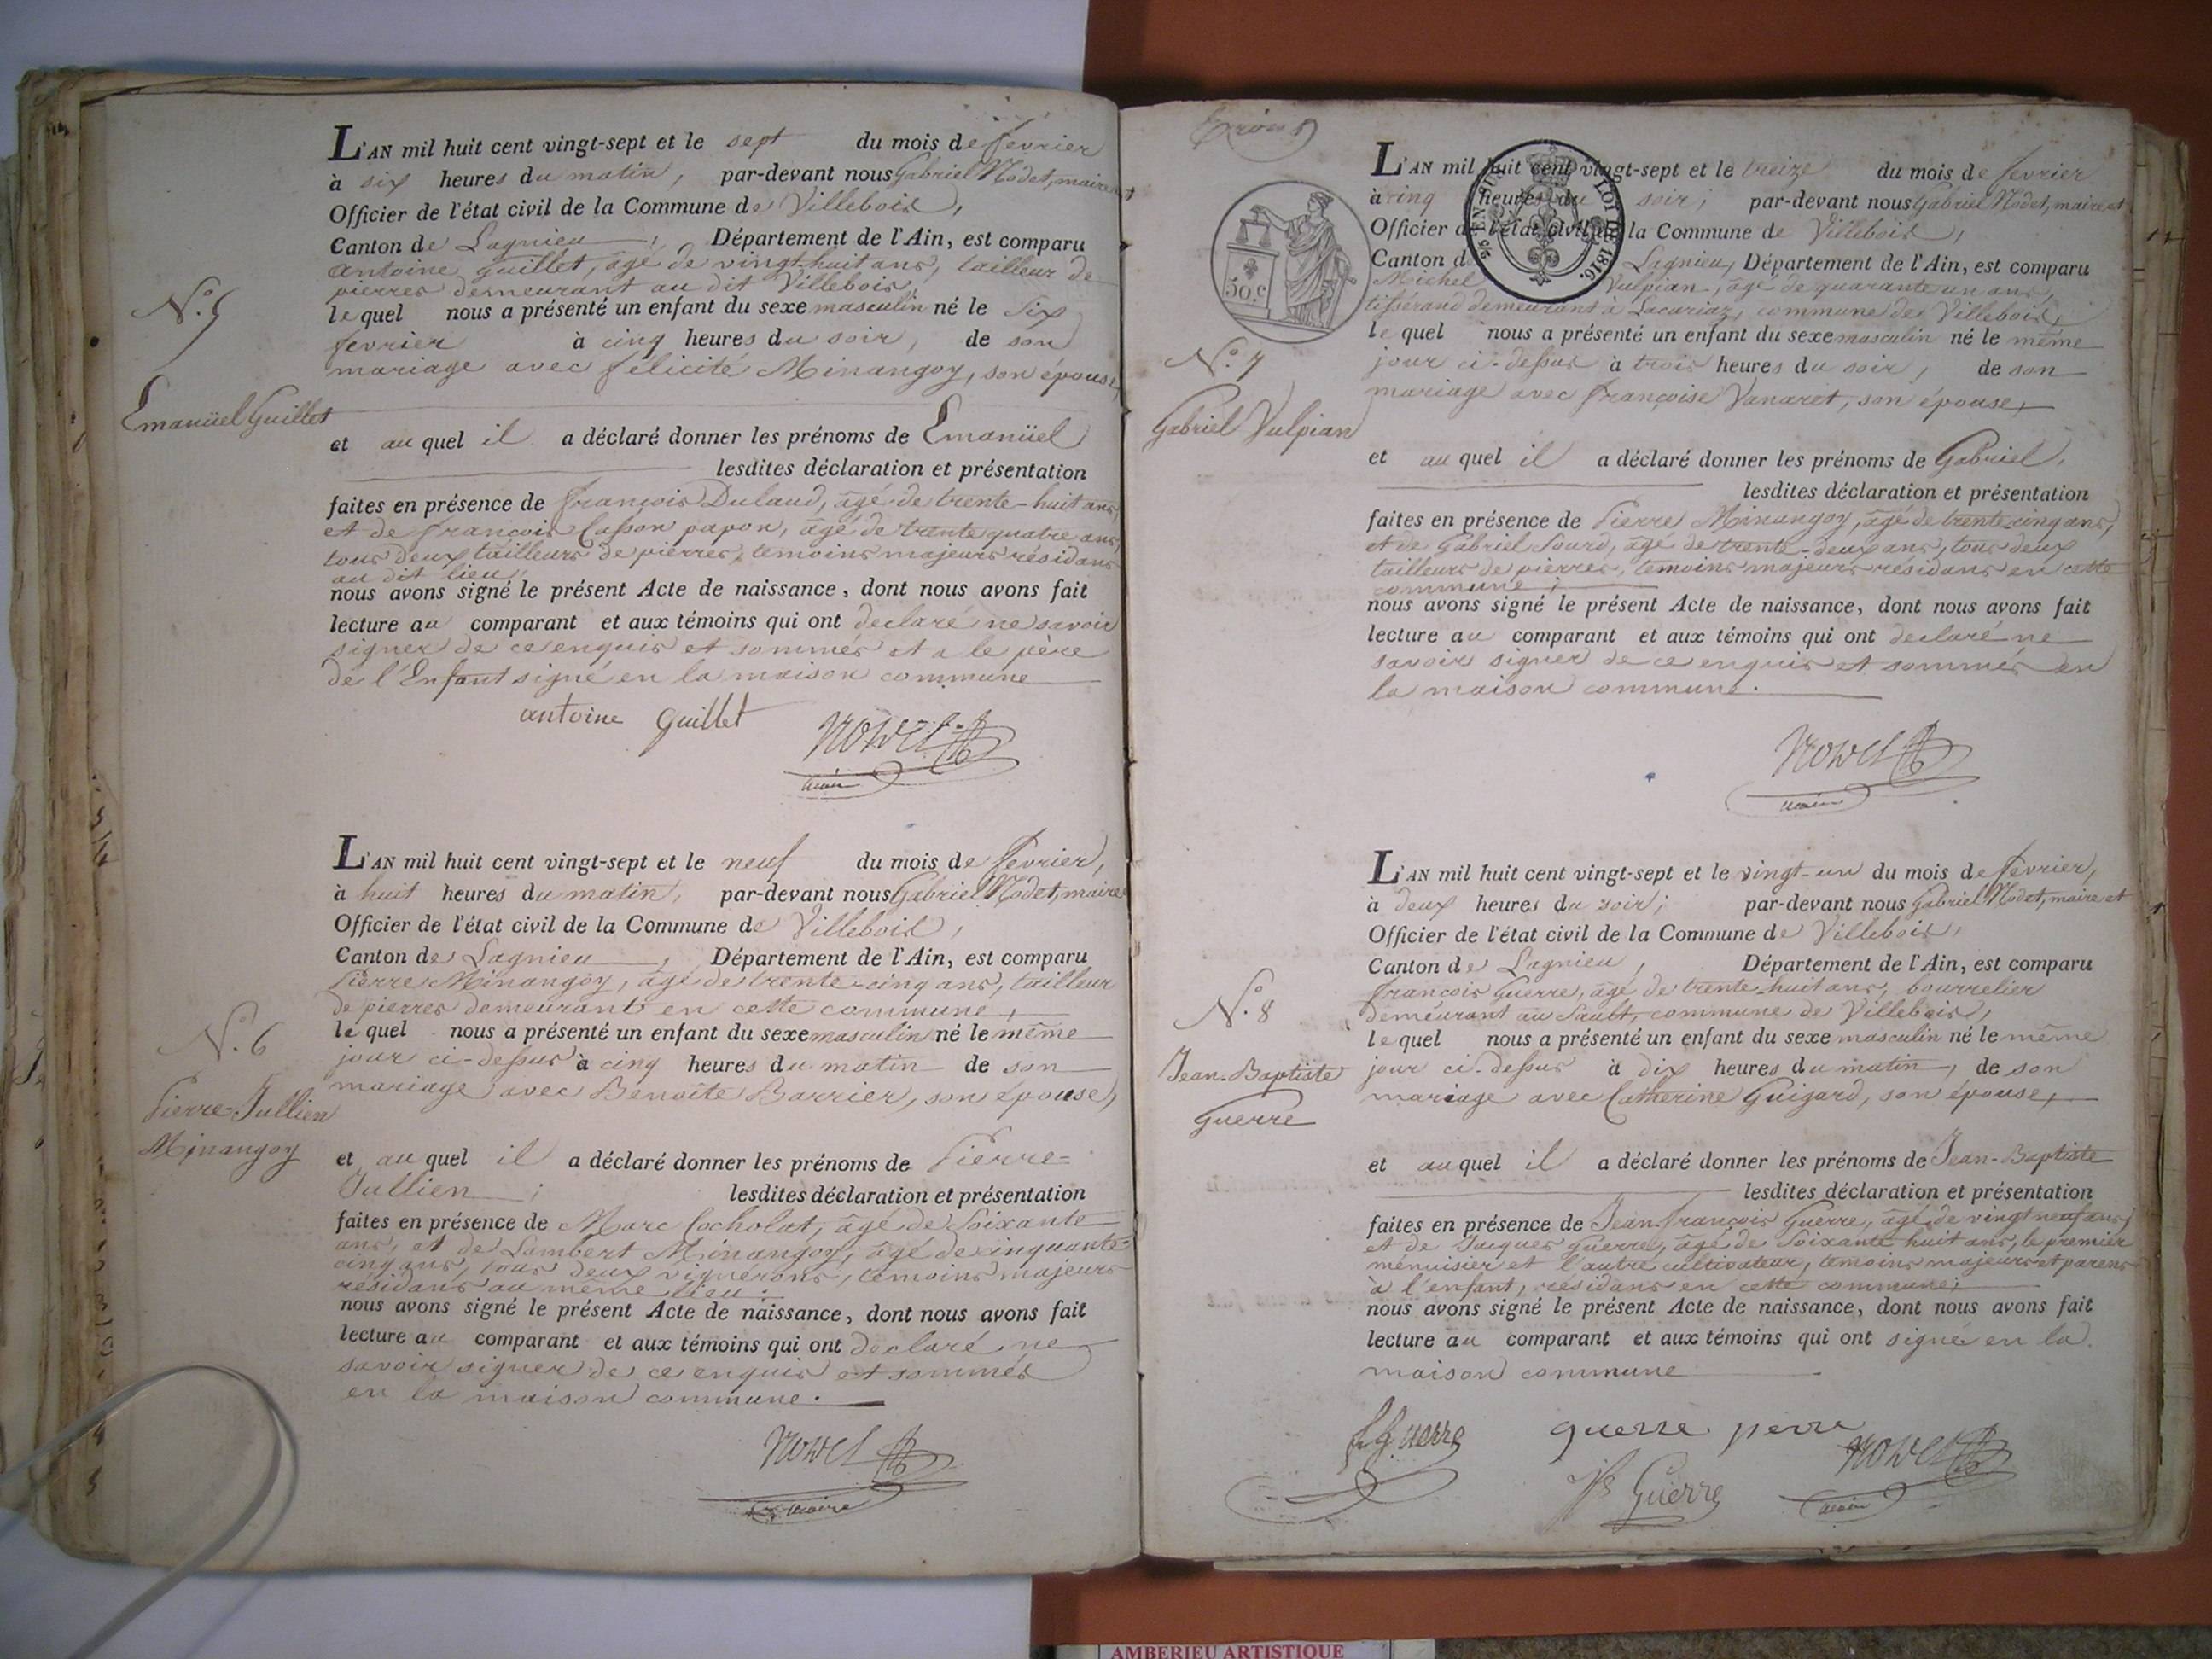 L'AN mil huit cent vingt-sept et le sept du mois de fevrier
à six heures du matin, par-devant nous Gabriel Nodet, maire et
Officier de l'état civil de la Commune de Villebois,
Canton de Lagnieu, Département de l'Ain, est comparu
antoine Guillet, âgé de vingt-huit ans, tailleur de
pierres demeurant au dit Villebois,
N.º 5
lequel nous a présenté un enfant du sexe masculin né le six
fevrier à cinq heures du soir, de son
mariage avec félicité Minangoy, son épouse,
Emanüel Guillet
et au quel il a déclaré donner les prénoms de Emanüel
lesdites déclaration et présentation
faites en présence de françois Dulaud, âgé de trente-huit ans,
et de françois Casson papon, âgé de trente quatre ans,
tous deux tailleurs de pierres, temoins majeurs résidans
au dit lieu,
nous avons signé le présent Acte de naissance, dont nous avons fait
lecture au comparant et aux témoins qui ont declaré ne savoir
signer de ce enquis et sommés et a le père
de l'Enfant signé en la maison commune
antoine guillet
maire
L'AN mil huit cent vingt-sept et le neuf du mois de fevrier,
à huit heures du matin, par-devant nous Gabriel Nodet, maire
Officier de l'état civil de la Commune de Villebois,
Canton de Lagnieu, Département de l'Ain, est comparu
Pierre Minangoy, âgé de trente-cinq ans, tailleur
de pierres demeurant en cette commune,
N.º 6
le quel nous a présenté un enfant du sexe masculin né le même
jour ci-dessus à cinq heures du matin de son
mariage avec Benoîte Barrier, son épouse,
Pierre-Jullien
Minangoy
et au quel il a déclaré donner les prénoms de Pierre=
Jullien; lesdites déclaration et présentation
faites en présence de Marc Cocholat, âgé de Soixante
ans, et de Lambert Minangoy, âgé de cinquante-
cinq ans, tous deux vignérons, temoins majeurs
résidans au même lieu.
nous avons signé le présent Acte de naissance, dont nous avons fait
lecture au comparant et aux témoins qui ont declaré ne
savoir signer de ce enquis et sommés
en la maison commune.
maire
L'AN mil huit cent vingt-sept et le treize du mois de fevrier
à cinq heures du soir; par-devant nous Gabriel Nodet, maire et
Officier de l'état civil de la Commune de Villebois,
Canton de Lagnieu, Département de l'Ain, est comparu
Michel Vulpian, âgé de quarante un ans,
tisserand demeurant à Lacariaz, commune de Villebois,
50.c
LOI DE 1816.
N.º 7
le quel nous a présenté un enfant du sexe masculin né le même
jour ci-dessus à trois heures du soir, de son
mariage avec françoise Vanaret, son épouse,
Gabriel Vulpian
et au quel il a déclaré donner les prénoms de Gabriel,
lesdites déclaration et présentation
faites en présence de Pierre Minangoy, âgé de trente cinq ans,
et de Gabriel Lourd, âgé de trente-deux ans, tous deux
tailleurs de pierres, temoins majeurs résidans en cette
commune;
nous avons signé le présent Acte de naissance, dont nous avons fait
lecture au comparant et aux témoins qui ont declaré ne
savoir signer de ce enquis et sommés en
la maison commune.
maire
L'AN mil huit cent vingt-sept et le vingt-un du mois de fevrier,
à deux heures du soir; par-devant nous Gabriel Nodet, maire et
Officier de l'état civil de la Commune de Villebois,
Canton de Lagnieu, Département de l'Ain, est comparu
françois Guerre, âgé de trente-huit ans, bourrelier
demeurant au Sault, commune de Villebois,
N.º 8
le quel nous a présenté un enfant du sexe masculin né le même
jour ci-dessus à dix heures du matin, de son
mariage avec Catherine Guigard, son épouse,
Jean-Baptiste
Guerre
et au quel il a déclaré donner les prénoms de Jean-Baptiste
lesdites déclaration et présentation
faites en présence de Jean françois Guerre, âgé de vingt neuf ans,
et de Jacques Guerre, âgé de Soixante huit ans, le premier
ménuisier et l'autre cultivateur, temoins majeurs et parens
à l'enfant, résidans en cette commune;
nous avons signé le présent Acte de naissance, dont nous avons fait
lecture au comparant et aux témoins qui ont signé en la
maison commune
f guerre
guerre perre
Jf Guerre
maire
AMBERIEU ARTISTIQUE